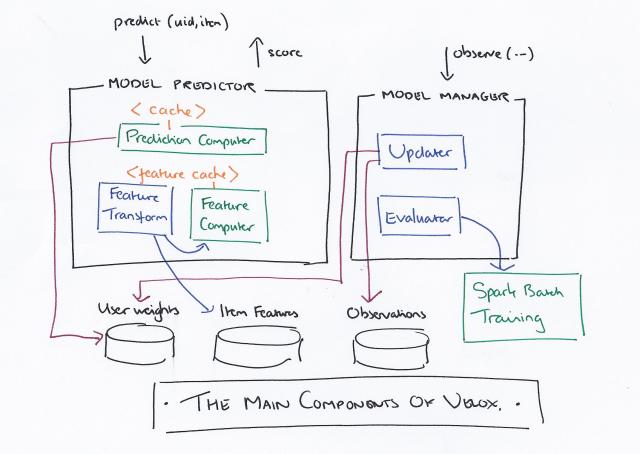 predict (uid, item)
score
observe (...)
MODEL PREDICTOR
< cache >
Prediction Computer
<feature cache>
Feature
Transform
Feature
Computer
MODEL MANAGER
Updater
Evaluator
Spark Batch
Training
User weights
Item Features
Observations
· THE MAIN COMPONENTS OF VELOX. ·